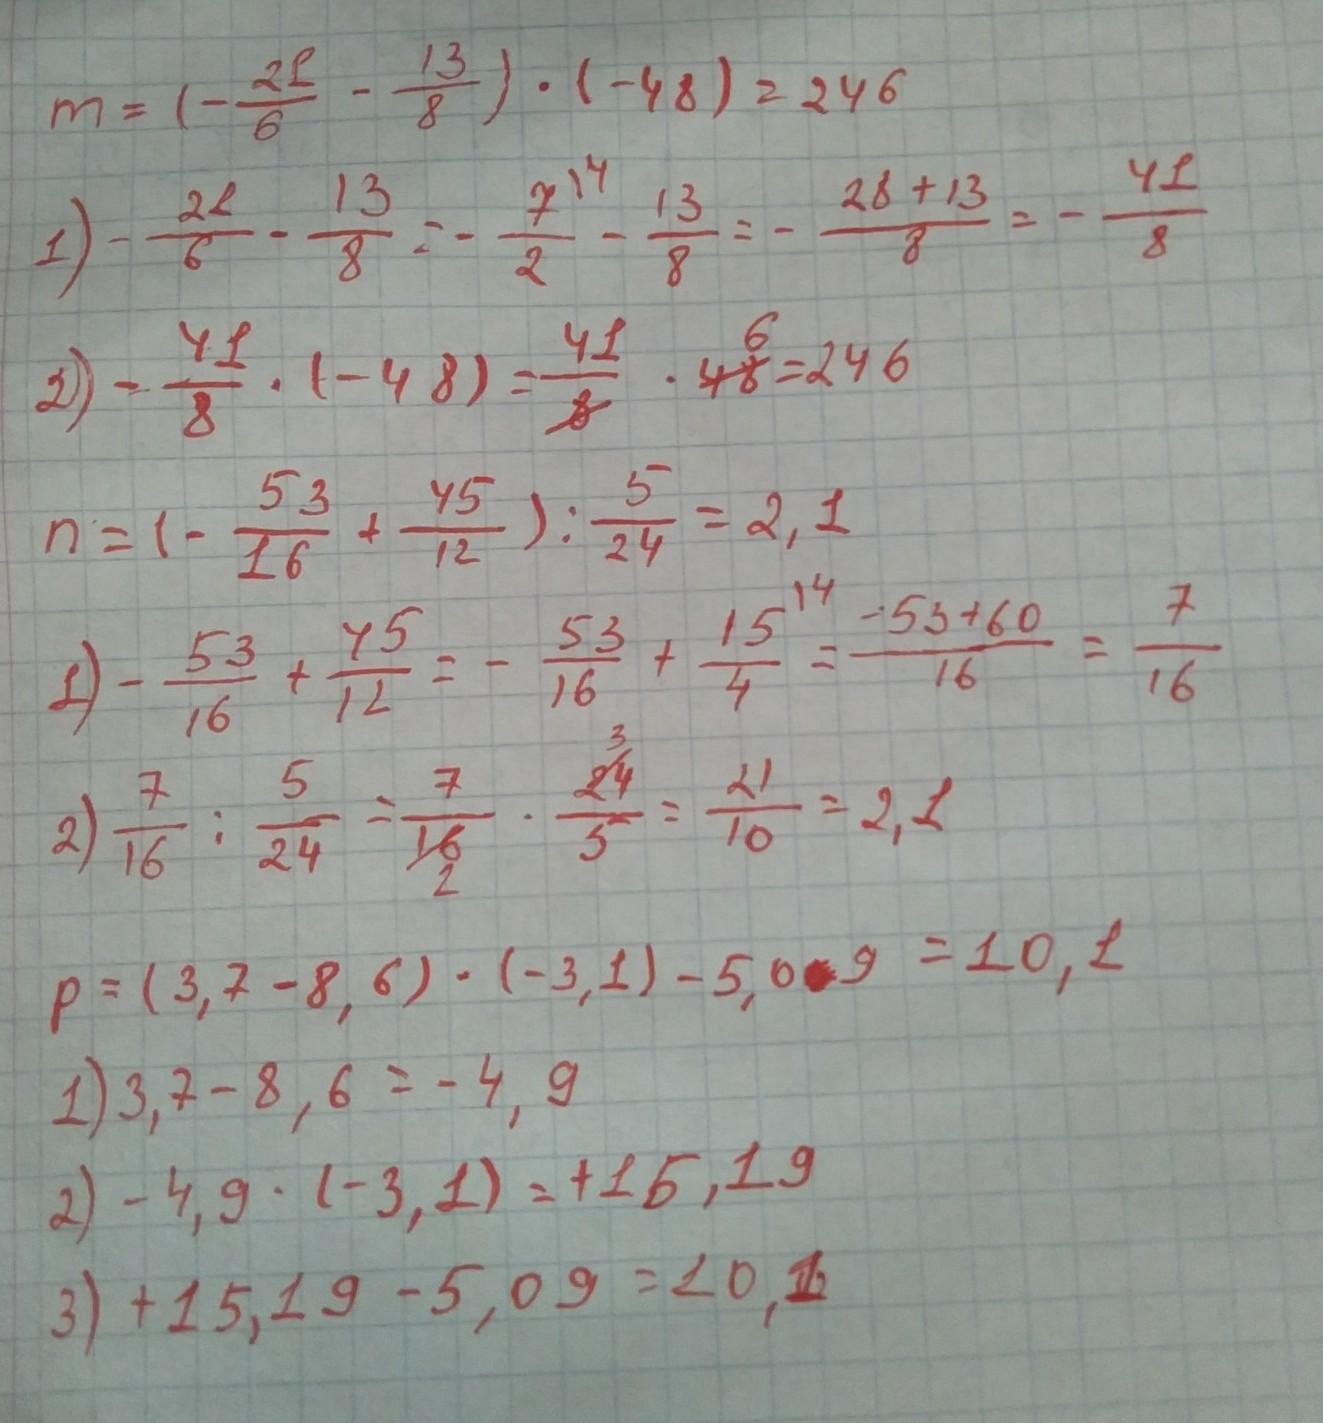 m = (-21/6 - 13/8) · (-48) = 246
1) -21/6 - 13/8 = -7/2 \4 - 13/8 = -(28+13)/8 = -41/8
2) -41/8 · (-48) = 41/8 · 48 6 = 246
n = (-53/16 + 45/12) : 5/24 = 2,1
1) -53/16 + 45/12 = -53/16 + 15/4 \4 = (-53+60)/16 = 7/16
2) 7/16 : 5/24 = 7/16 2 · 3 24/5 = 21/10 = 2,1
p = (3,7 - 8,6) · (-3,1) - 5,09 = 10,1
1) 3,7 - 8,6 = -4,9
2) -4,9 · (-3,1) = +15,19
3) +15,19 - 5,09 = 10,1